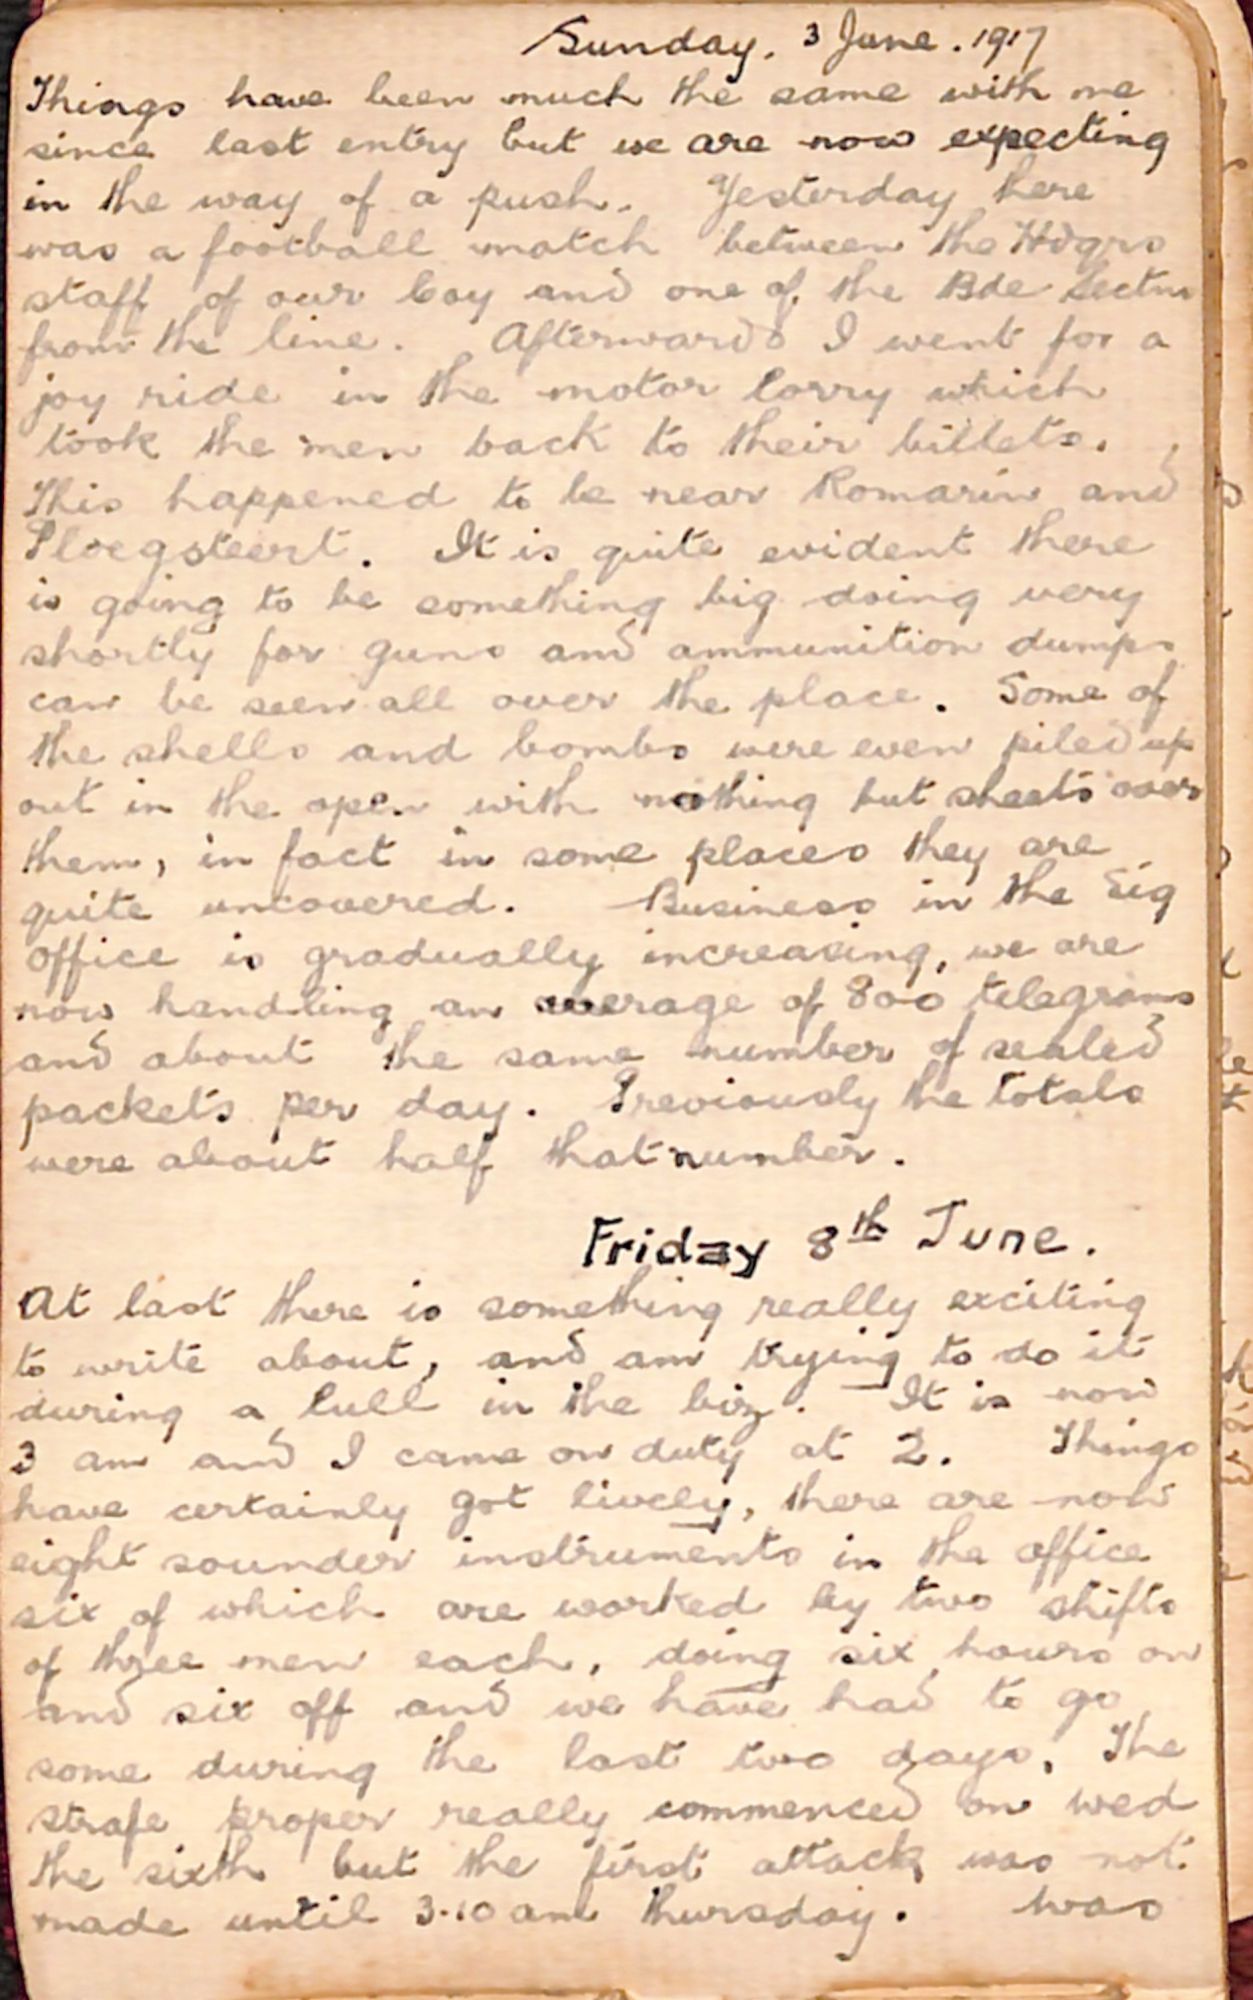 Sunday. 3 June. 1917
Things have been much the same with me
since last entry but we are now expecting
in the way of a push. Yesterday there
was a football match between the Hdqrs
staff of our Coy and one of the Bde Sectns
from the line. Afterwards I went for a
joy ride in the motor lorry which
took the men back to their billets.
This happened to be near Romarin and
Ploegsteert. It is quite evident there
is going to be something big doing very
shortly for guns and ammunition dumps
can be seen all over the place. Some of
the shells and bombs were even piled up
out in the open with nothing but sheets over
them, in fact in some places they are
quite uncovered. Business in the Sig
office is gradually increasing, we are
now handling an average of 800 telegrams
and about the same number of sealed
packets per day. Previously the totals
were about half that number.
Friday 8th June.
At last there is something really exciting
to write about, and am trying to do it
during a lull in the biz. It is now
3 am and I came on duty at 2. Things
have certainly got lively, there are now
eight sounder instruments in the office
six of which are worked by two shifts
of three men each, doing six hours on
and six off and we have had to go
some during the last two days. The
strafe proper really commenced on wed
the sixth but the first attack was not
made until 3.10 am Thursday. Was